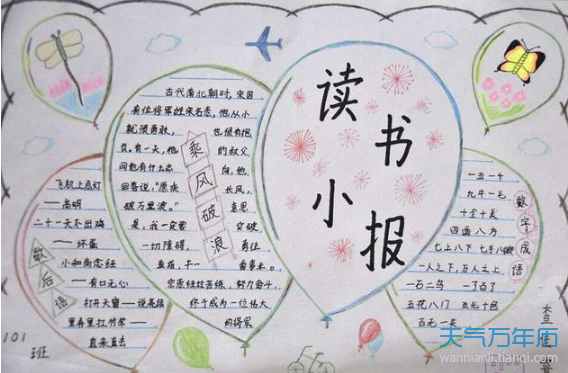 读书小报
古代南北朝时,宋国
有位将军姓宋名悫,他从小
就很勇敢,也很有抱
负。有一天,他的叔父
问他有什么志向,他
回答说:"愿乘长风,
破万里浪。"意思
是,我一定要突破
一切障碍,勇往
直前,干一番事业。
宗悫经过苦练,努力奋斗,
终于成为一位伟大
的将军
乘风破浪
飞机上点灯
——高明
二十一天不出鸡
——坏蛋
小和尚念经
——有口无心
打开天窗——说亮话
里弄里扛竹竿——
直来直去
歇后语
一五一十
九牛一毛
十全十美
四面八方
七上八下 七手八脚
一人之下,万人之上
一石二鸟 一了百了
五花八门 五光十色
百无一失
数字成语
101
班
天气万年历
wannianli.tianqi.com